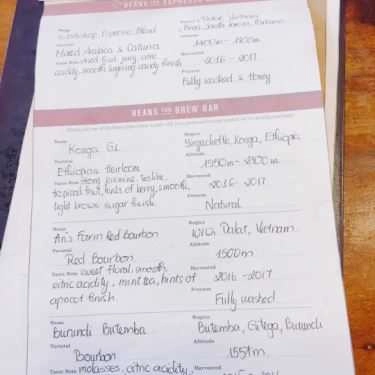 BEANS FOR ESPRESSO
Name
Region
Workshop Espresso Blend
Varietal
Altitude
Mixed Arabica & Caturra
1400m - 1800m
Taste Note
Harvested
acidity, smooth
acidity finish
2016 - 2017
Process
Fully washed & Honey
BEANS FOR BREW BAR
Name
Region
Konga G1
Yirgacheffe, Konga, Ethiopia
Varietal
Altitude
Ethiopian Heirloom
1950m - 2100m
Taste Note
Harvested
tropical fruit, hints of berry, smooth,
2016 - 2017
light brown sugar finish
Process
Natural
Name
Region
An's Farm Red Bourbon
Dalat, Vietnam
Varietal
Altitude
Red Bourbon
1500m
Taste Note sweet floral, smooth
Harvested
citric acidity, mint tea, hints of
2016 - 2017
apricot finish
Process
Fully washed
Name
Region
Burundi Butemba
Butemba, Gitega, Burundi
Varietal
Altitude
Bourbon
1559m
Taste Note molasses, citric acidity,
Harvested